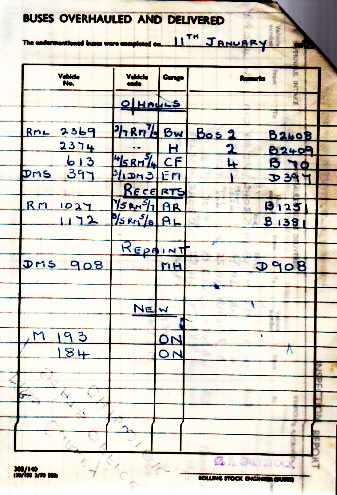 BUSES OVERHAULED AND DELIVERED
The undermentioned buses were completed on 11TH JANUARY
Vehicle No. Vehicle code Garage Remarks
O/HAULS
RML 2369 3/7RM7/9 BW BOS 2 B2408
2374 " H 2 B2409
613 4/5RM5/4 CF 4 B70
DMS 397 3/1DM3 EM 1 D397
RECERTS
RM 1027 4/5RM5/7 AR B1251
1172 8/5RM5/8 AL B1381
REPAINT
DMS 908 MH D908
NEW
M 193 ON
184 ON
INSPECTION REPORT
ROLLING STOCK ENGINEER (BUSES)